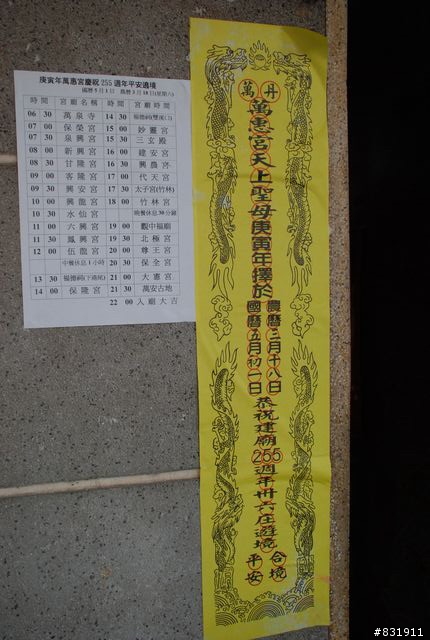 庚寅年萬惠宮慶祝255週年平安遶境
國曆5月1日 農曆3月18日(星期六)
時間 宮廟名稱 時間 宮廟時間
06 30 萬泉寺 14 30
07 00 保榮宮 15 00 妙靈宮
07 30 泉興宮 15 30 三玄殿
08 00 新興宮 16 00 建安宮
08 30 甘隆宮 16 30 興農宮
09 00 客隆宮 17 00 代天宮
09 30 興安宮 17 30 太子宮(竹林)
10 00 興龍宮 18 00 竹林宮
10 30 水仙宮 晚餐休息30分鐘
11 00 六興宮 19 00 觀中福廟
11 30 鳳興宮 19 30 北極宮
12 00 伍龍宮 20 00 尊王宮
中餐休息1小時 20 30 保全宮
13 30 21 00 大憲宮
14 00 保隆宮 21 30 萬安古地
22 00 入廟大吉
萬丹
萬惠宮天上聖母庚寅年擇於
農曆三月十八日
國曆五月初一日
恭祝建廟255週年卅六庄遊境
合境
平安
#831911